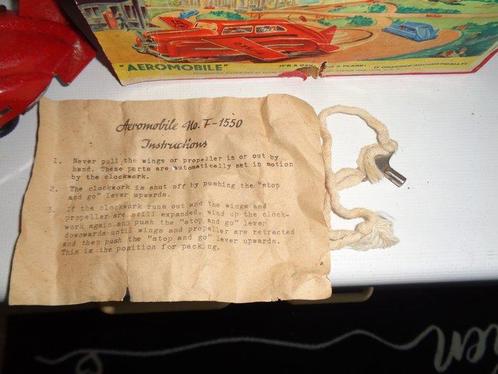 "AEROMOBILE"
Aeromobile No. F-1550
Instructions
1. Never pull the wings or propeller in or out by
hand. These parts are automatically set in motion
by the clockwork.
2. The clockwork is shut off by pushing the "stop
and go" lever upwards.
3. If the clockwork runs out and the wings and
propeller are still expanded, wind up the clock-
work again and push the "stop and go" lever
downwards until wings and propeller are retracted
and then push the "stop and go" lever upwards.
This is the position for packing.